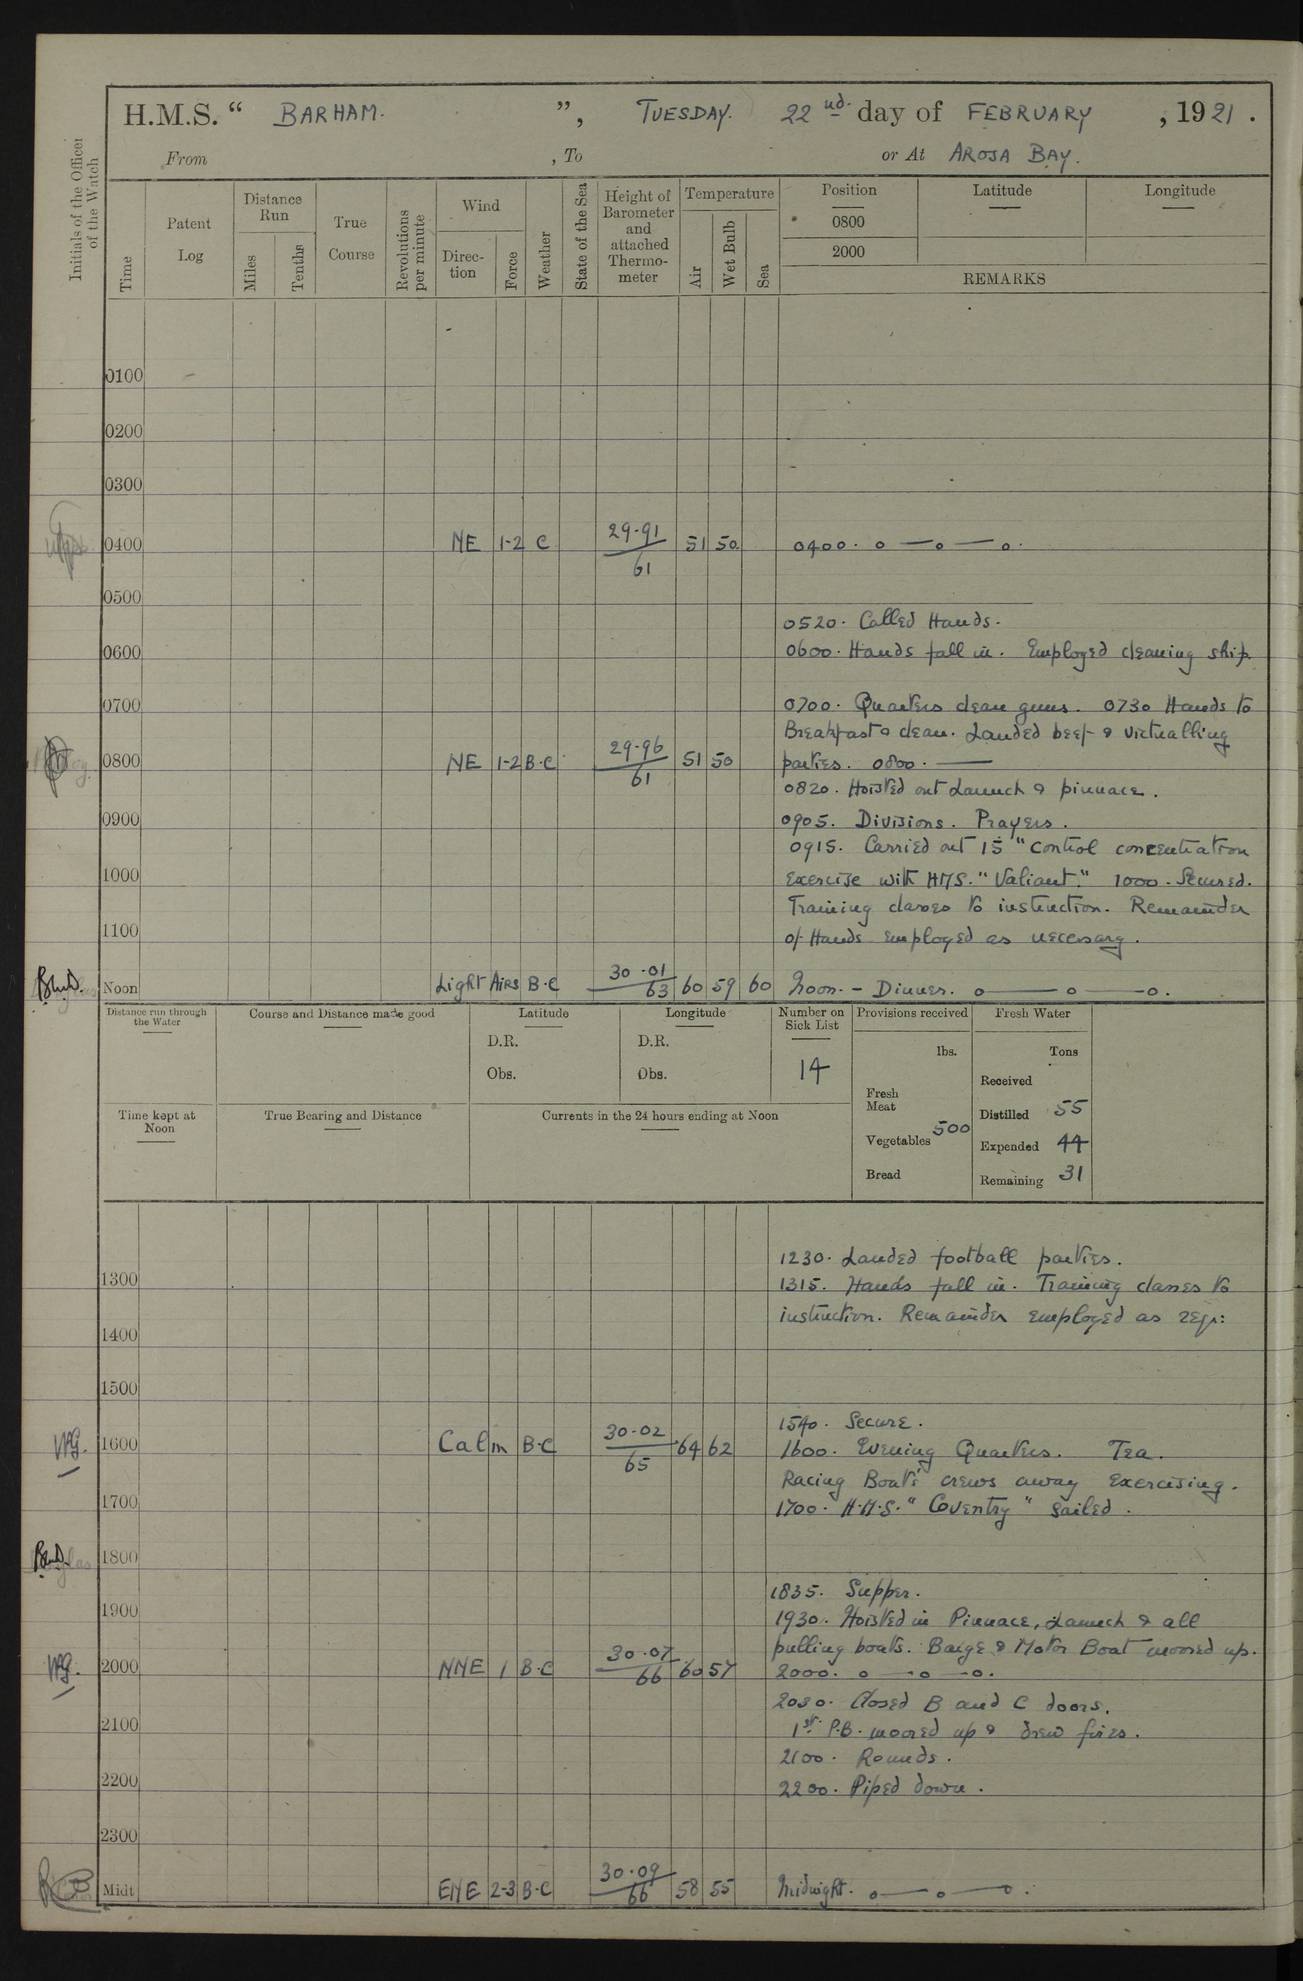 H.M.S. “ BARHAM. ”, TUESDAY. 22nd. day of FEBRUARY , 1921 .
From , To or At AROSA BAY.
Initials of the Officer of the Watch
Time
Patent Log
Distance Run
Miles
Tenths
True Course
Revolutions per minute
Wind
Direc-tion
Force
Weather
State of the Sea
Height of Barometer and attached Thermo-meter
Temperature
Air
Wet Bulb
Sea
Position Latitude Longitude
0800
2000
REMARKS
0100
0200
0300
0400 NE 1-2 C 29.91/61 51 50 0400. o — o — o.
0500
0520. Called Hands.
0600 0600. Hands fall in. Employed cleaning ship
0700 0700. Quarters clean guns. 0730 Hands to
Breakfast & clean. Landed beef & victualling
0800 NE 1-2 B.C 29.96/61 51 50 parties. 0800. —
0820. Hoisted out Launch & pinnace.
0900 0905. Divisions. Prayers.
0915. Carried out 15" control concentration
1000 Exercise with HMS. "Valiant." 1000. Secured.
Training classes to instruction. Remainder
1100 of Hands employed as necessary.
B.W.D. Noon Light Airs B.C 30.01/63 60 59 60 Noon. - Dinner. o — o — o.
Distance run through the Water
Course and Distance made good
Latitude
D.R.
Obs.
Longitude
D.R.
Obs.
Number on Sick List
14
Provisions received
lbs.
Fresh Meat
Vegetables 500
Bread
Fresh Water
Tons
Received
Distilled 55
Expended 44
Remaining 31
Time kept at Noon
True Bearing and Distance
Currents in the 24 hours ending at Noon
1230. Landed football parties.
1300 1315. Hands fall in. Training classes to
instruction. Remainder employed as req:
1400
1500
1540. Secure.
1600 Calm B.C 30.02/65 64 62 1600. Evening Quarters. Tea.
Racing Boats' crews away Exercising.
1700 1700. H.M.S. "Coventry" sailed.
1800
1835. Supper.
1900 1930. Hoisted in Pinnace, Launch & all
pulling boats. Barge & Motor Boat moored up.
2000 NNE 1 B.C 30.07/66 60 57 2000. o — o — o.
2030. Closed B and C doors.
2100 1st. P.B. moored up & drew fires.
2100. Rounds.
2200 2200. Piped down.
2300
Midt ENE 2-3 B.C 30.09/66 58 55 Midnight. o — o — o.